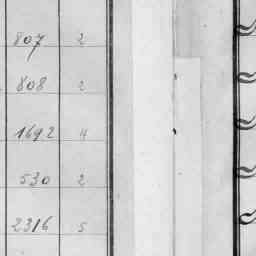 807 2
808 2
1692 4
530 2
2316 5